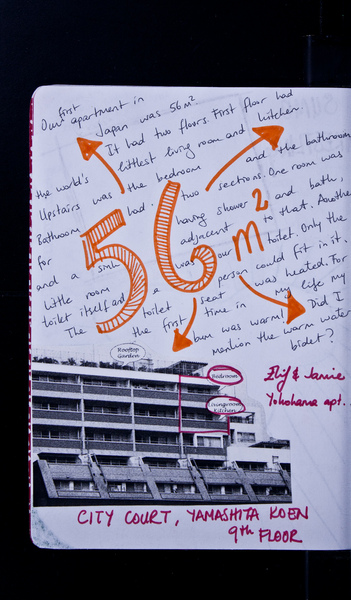 first
Our apartment in Japan was 56 m²
It had two floors. First floor had
the world's littlest living room and kitchen.
Upstairs was the bedroom and the bathroom
Bathroom had two sections. One room was
for having shower and bath,
and a sink adjacent to that. Another
little room was our toilet. Only the
toilet itself and a person could fit in it.
The toilet seat was heated. For
the first time in my life my
bum was warm! Did I
mention the warm water
bidet?
56 m²
Rooftop
Garden
Bedroom
Livingroom
Kitchen
Elif & Jamie
Yokohama apt..
CITY COURT, YAMASHITA KOEN
9th FLOOR